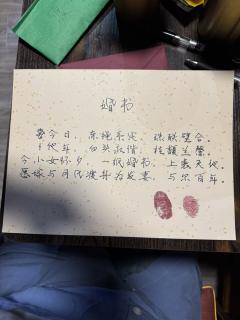 婚书
喜今日，赤绳系定，珠联璧合。
卜他年，白头永偕，桂馥兰馨。
今小女 夕，一纸婚书，上表天地
愿嫁与 民渡舟为发妻，与尔百年。